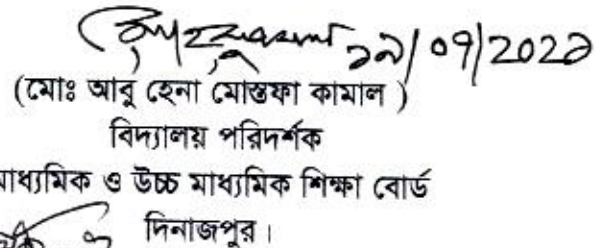 ১৯/০৭/২০২১
(মোঃ আবু হেনা মোস্তফা কামাল )
বিদ্যালয় পরিদর্শক
মাধ্যমিক ও উচ্চ মাধ্যমিক শিক্ষা বোর্ড
দিনাজপুর।